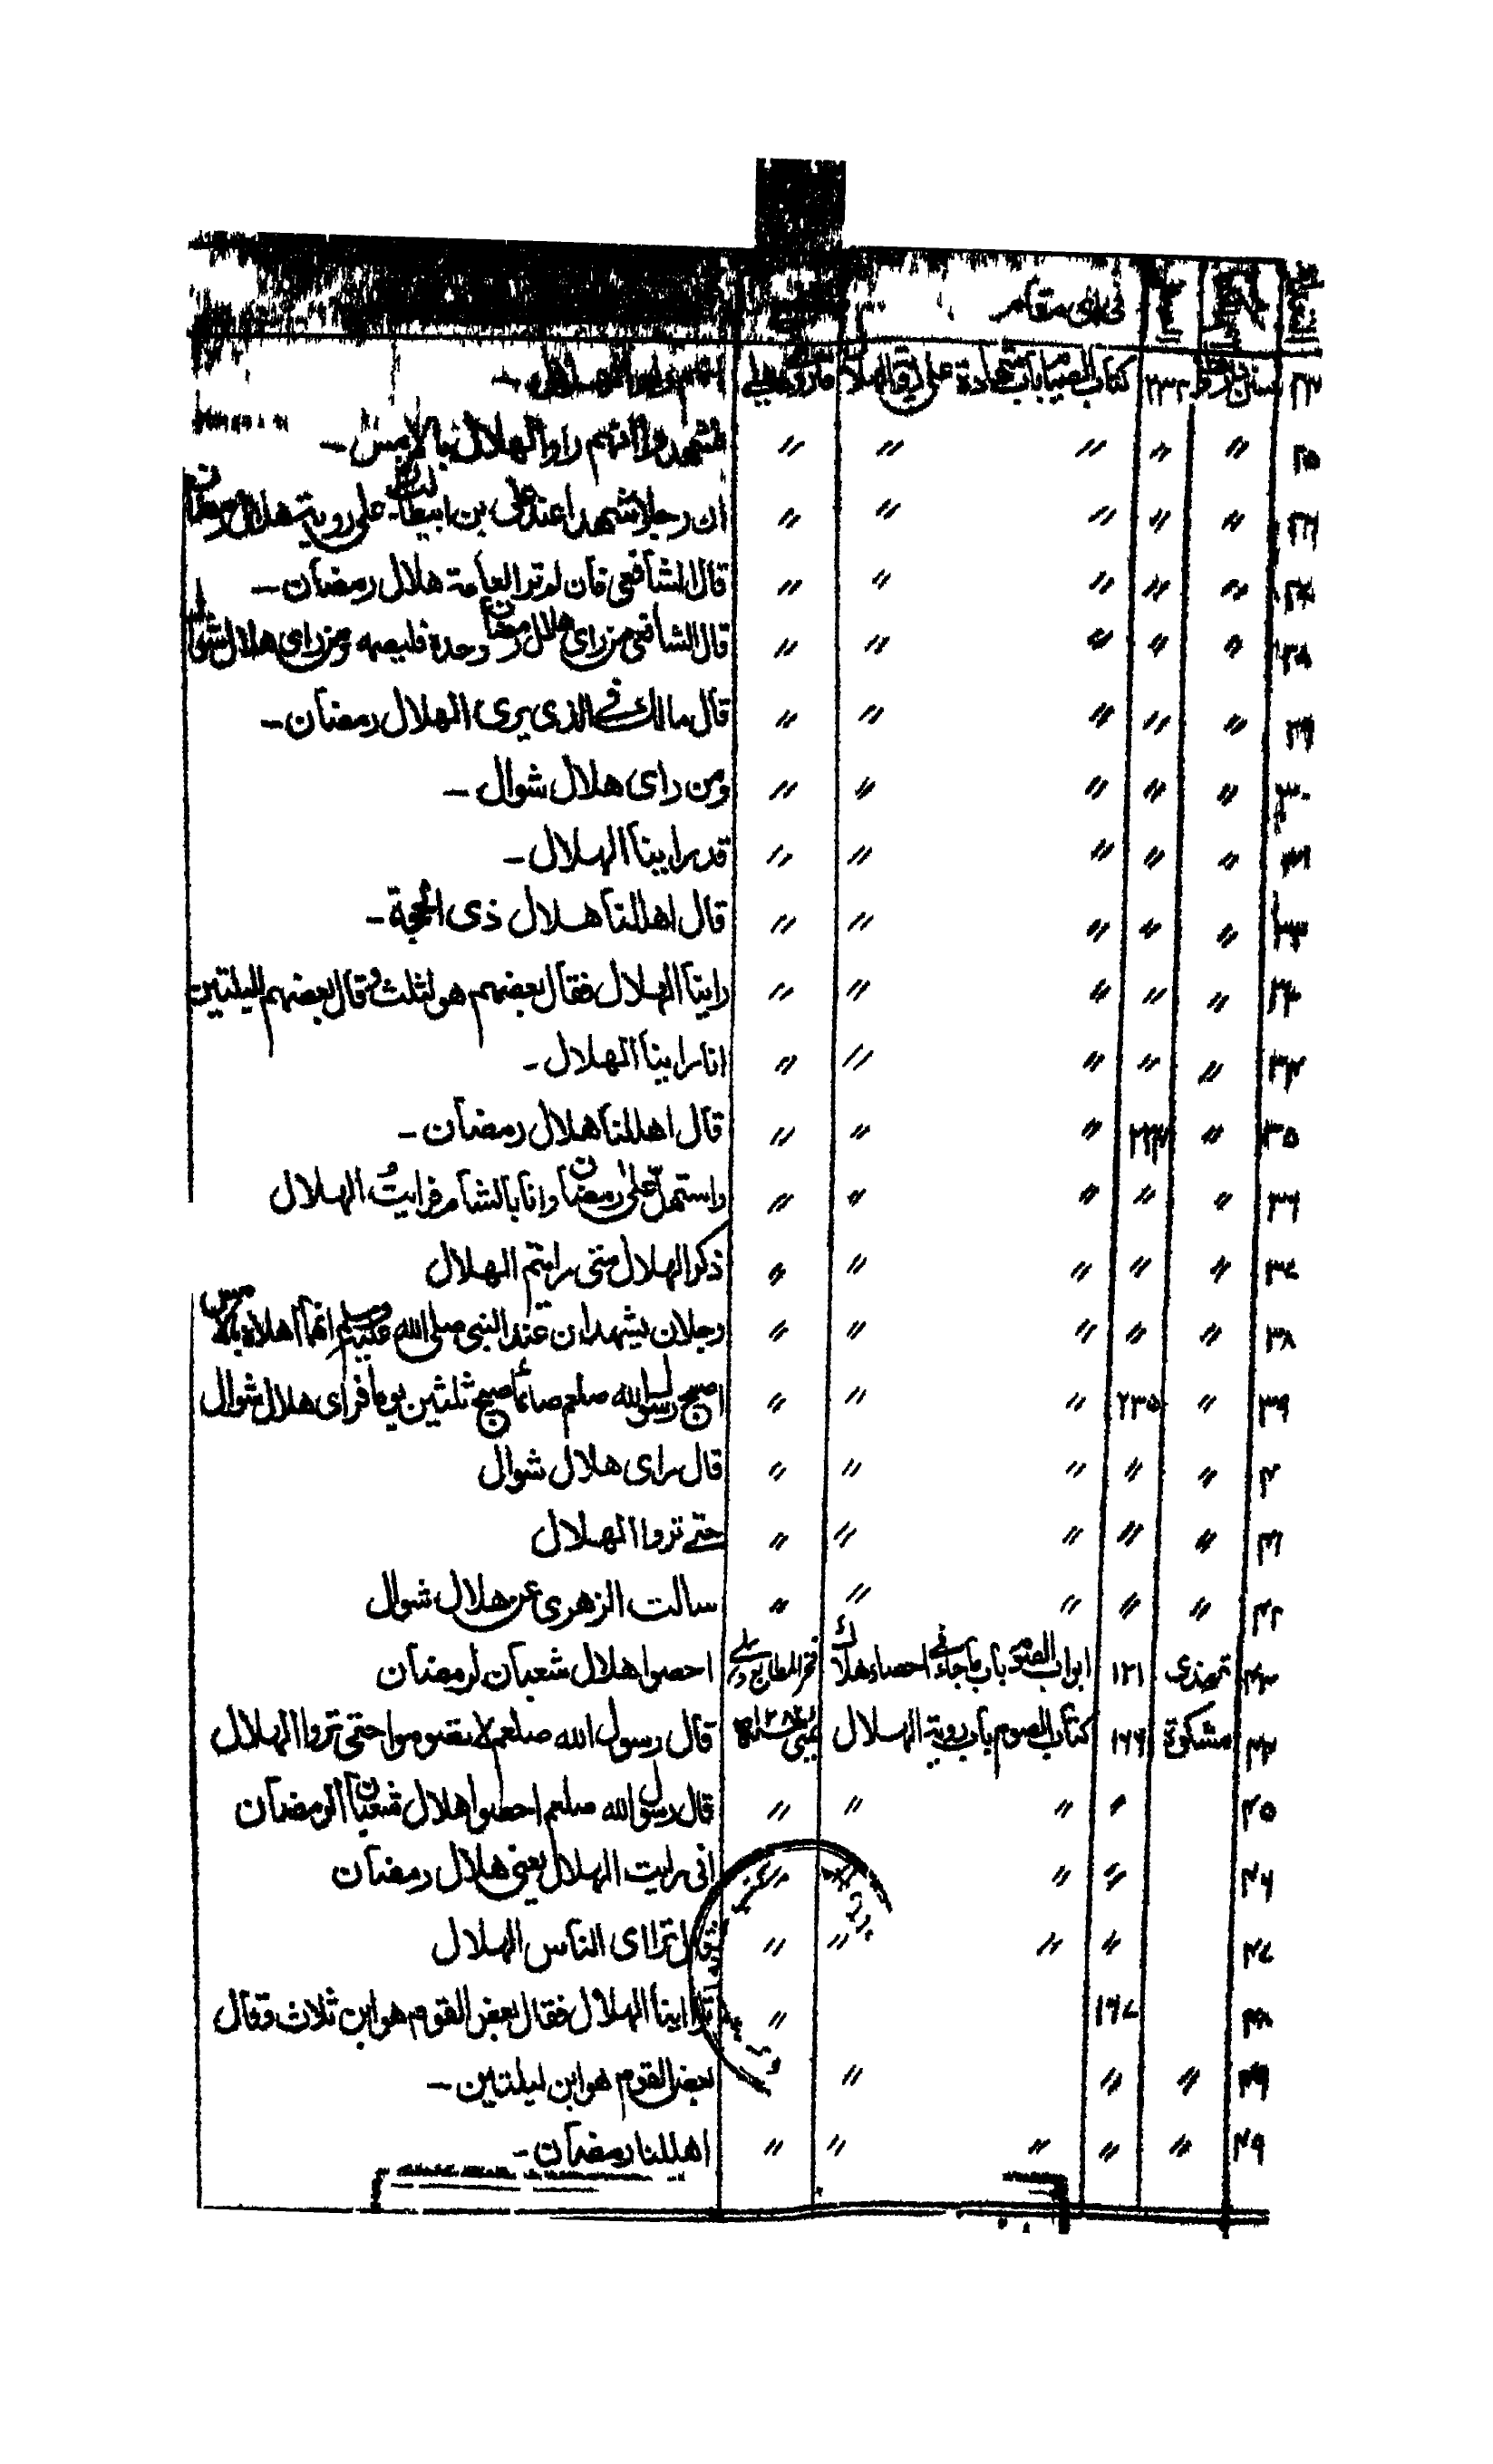 نی ای مقام
۲۴ سنن دارقطنی ۲۳۳ کتاب الصیام باب شهادة علی رویة الهلال فاروقی دهلی
۲۵ 〃 〃 〃 〃 〃 فشهدوا انهم راوا الهلال بالامس ـ
۲۶ 〃 〃 〃 〃 〃 ان رجلا شهدا عند علی بن ابیطالب علی رویة هلال رمضان
۲۷ 〃 〃 〃 〃 〃 قال الشافعی فان لم تر العامة هلال رمضان ـ
۲۸ 〃 〃 〃 〃 〃 قال الشافعی من رای هلال رمضان وحدة فلیصمه ومن رای هلال شوال
۲۹ 〃 〃 〃 〃 〃 قال مالك فی الذی یری الهلال رمضان ـ
۳۰ 〃 〃 〃 〃 〃 ومن رای هلال شوال ـ
۳۱ 〃 〃 〃 〃 〃 قد راینا الهلال ـ
۳۲ 〃 〃 〃 〃 〃 قال اهللنا هلال ذی الحجة ـ
۳۳ 〃 〃 〃 〃 〃 راینا الهلال فقال بعضهم هو لثلث وقال بعضهم لليلتین
۳۴ 〃 〃 〃 〃 〃 انا راینا الهلال ـ
۳۵ 〃 ۲۳۴ 〃 〃 〃 قال اهللنا هلال رمضان ـ
۳۶ 〃 〃 〃 〃 〃 واستهل علی رمضان وانا بالشام فرایتُ الهلال
۳۷ 〃 〃 〃 〃 〃 ذکر الهلال متی رایتم الهلال
۳۸ 〃 〃 〃 〃 〃 رجلان یشهدان عند النبی صلی الله علیه وسلم انهما اهلاه بالامس
۳۹ 〃 ۲۳۵ 〃 〃 〃 اصبح رسول الله صلعم صائما صبح ثلثین یوما فرای هلال شوال
۴۰ 〃 〃 〃 〃 〃 قال رای هلال شوال
۴۱ 〃 〃 〃 〃 〃 حتے تروا الهلال
۴۲ 〃 〃 〃 〃 〃 سالت الزهری عن هلال شوال
۴۳ ترمذی ۱۲۱ ابواب الصوم باب ماجاء فی احصاء هلال فخر المطابع دہلی احصوا هلال شعبان لرمضان
۴۴ مشکوة ۱۶۶ کتاب الصوم باب رویة الهلال قال رسول الله صلعم لا تصوموا حتی تروا الهلال
۴۵ 〃 〃 〃 〃 قال رسول الله صلعم احصوا هلال شعبان لرمضان
۴۶ 〃 〃 〃 〃 انی رایت الهلال یعنی هلال رمضان
۴۷ 〃 〃 〃 〃 قال ترای الناس الهلال
۴۸ ۱۶۷ 〃 تراینا الهلال فقال بعض القوم هو ابن ثلاث وقال
〃 〃 〃 بعض القوم هو ابن لیلتین ـ
۴۹ 〃 〃 〃 〃 〃 اهللنا رمضان ـ